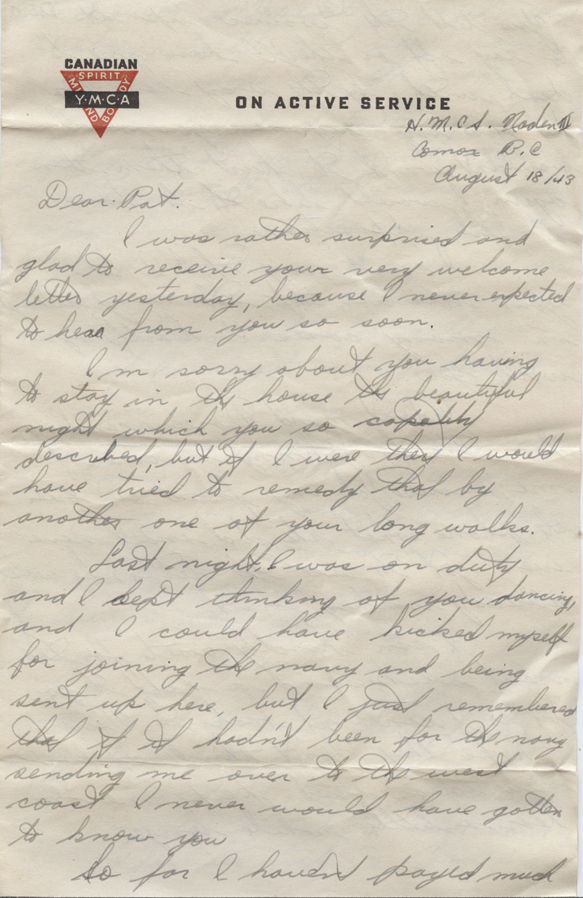 CANADIAN
SPIRIT
MIND BODY
Y·M·C·A
ON ACTIVE SERVICE
H.M.C.S. Naden III
Comox B.C
August 18/43
Dear Pat.
I was rather surprised and
glad to receive your very welcome
letter yesterday, because I never expected
to hear from you so soon.
I'm sorry about you having
to stay in the house this beautiful
night which you so capably
described, but if I were there I would
have tried to remedy that by
another one of your long walks.
Last night I was on duty
and I kept thinking of you dancing
and I could have kicked myself
for joining the navy and being
sent up here, but I just remembered
that if it hadn't been for the navy
sending me over to the west
coast I never would have gotten
to know you
So far I haven't payed much